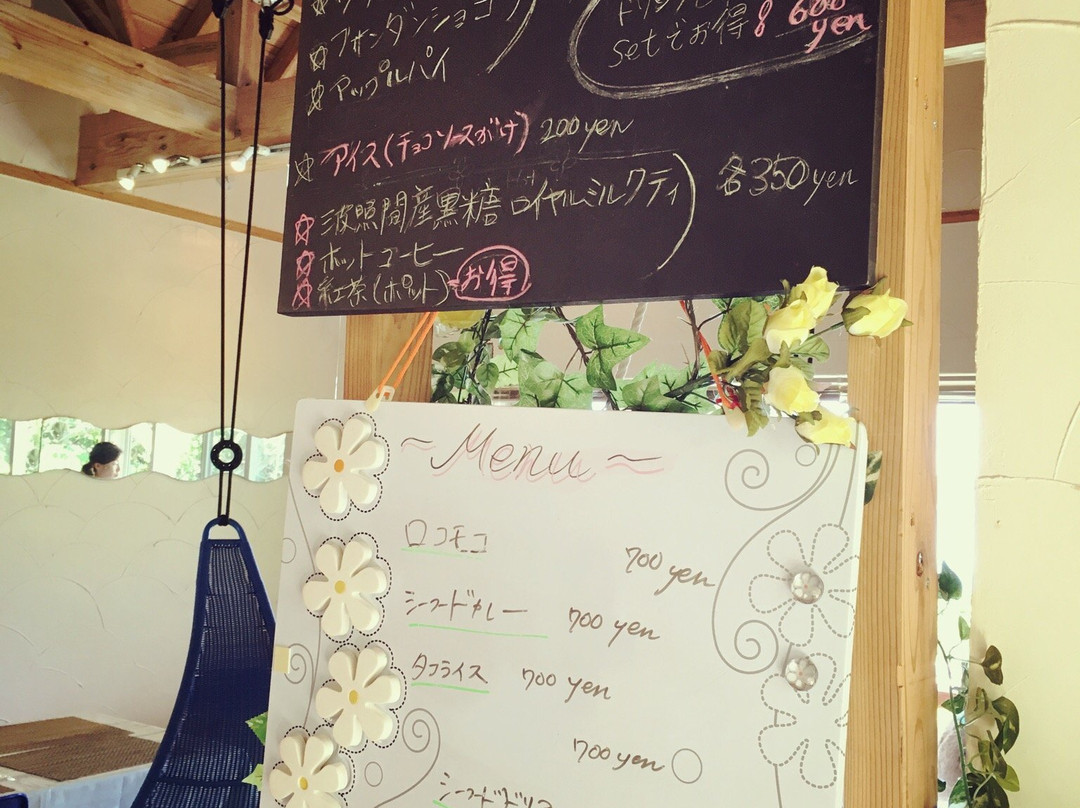 ドリンク
setでお得 600 yen
☆アップルパイ
☆アイス(チョコソースがけ) 200yen
☆波照間産黒糖 ロイヤルミルクティ 各350yen
☆ホットコーヒー
☆紅茶(ポット) お得
~Menu~
ロコモコ 700 yen
シーフードカレー 700 yen
タコライス 700 yen
700 yen
シーフードドリア